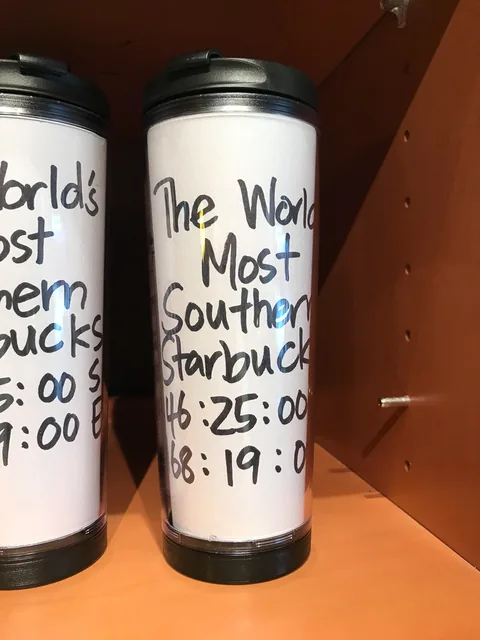 World's
ost
hern
bucks
5: 00 S
9:00 E
The World
Most
Southern
Starbuck
46:25:00
168:19:0